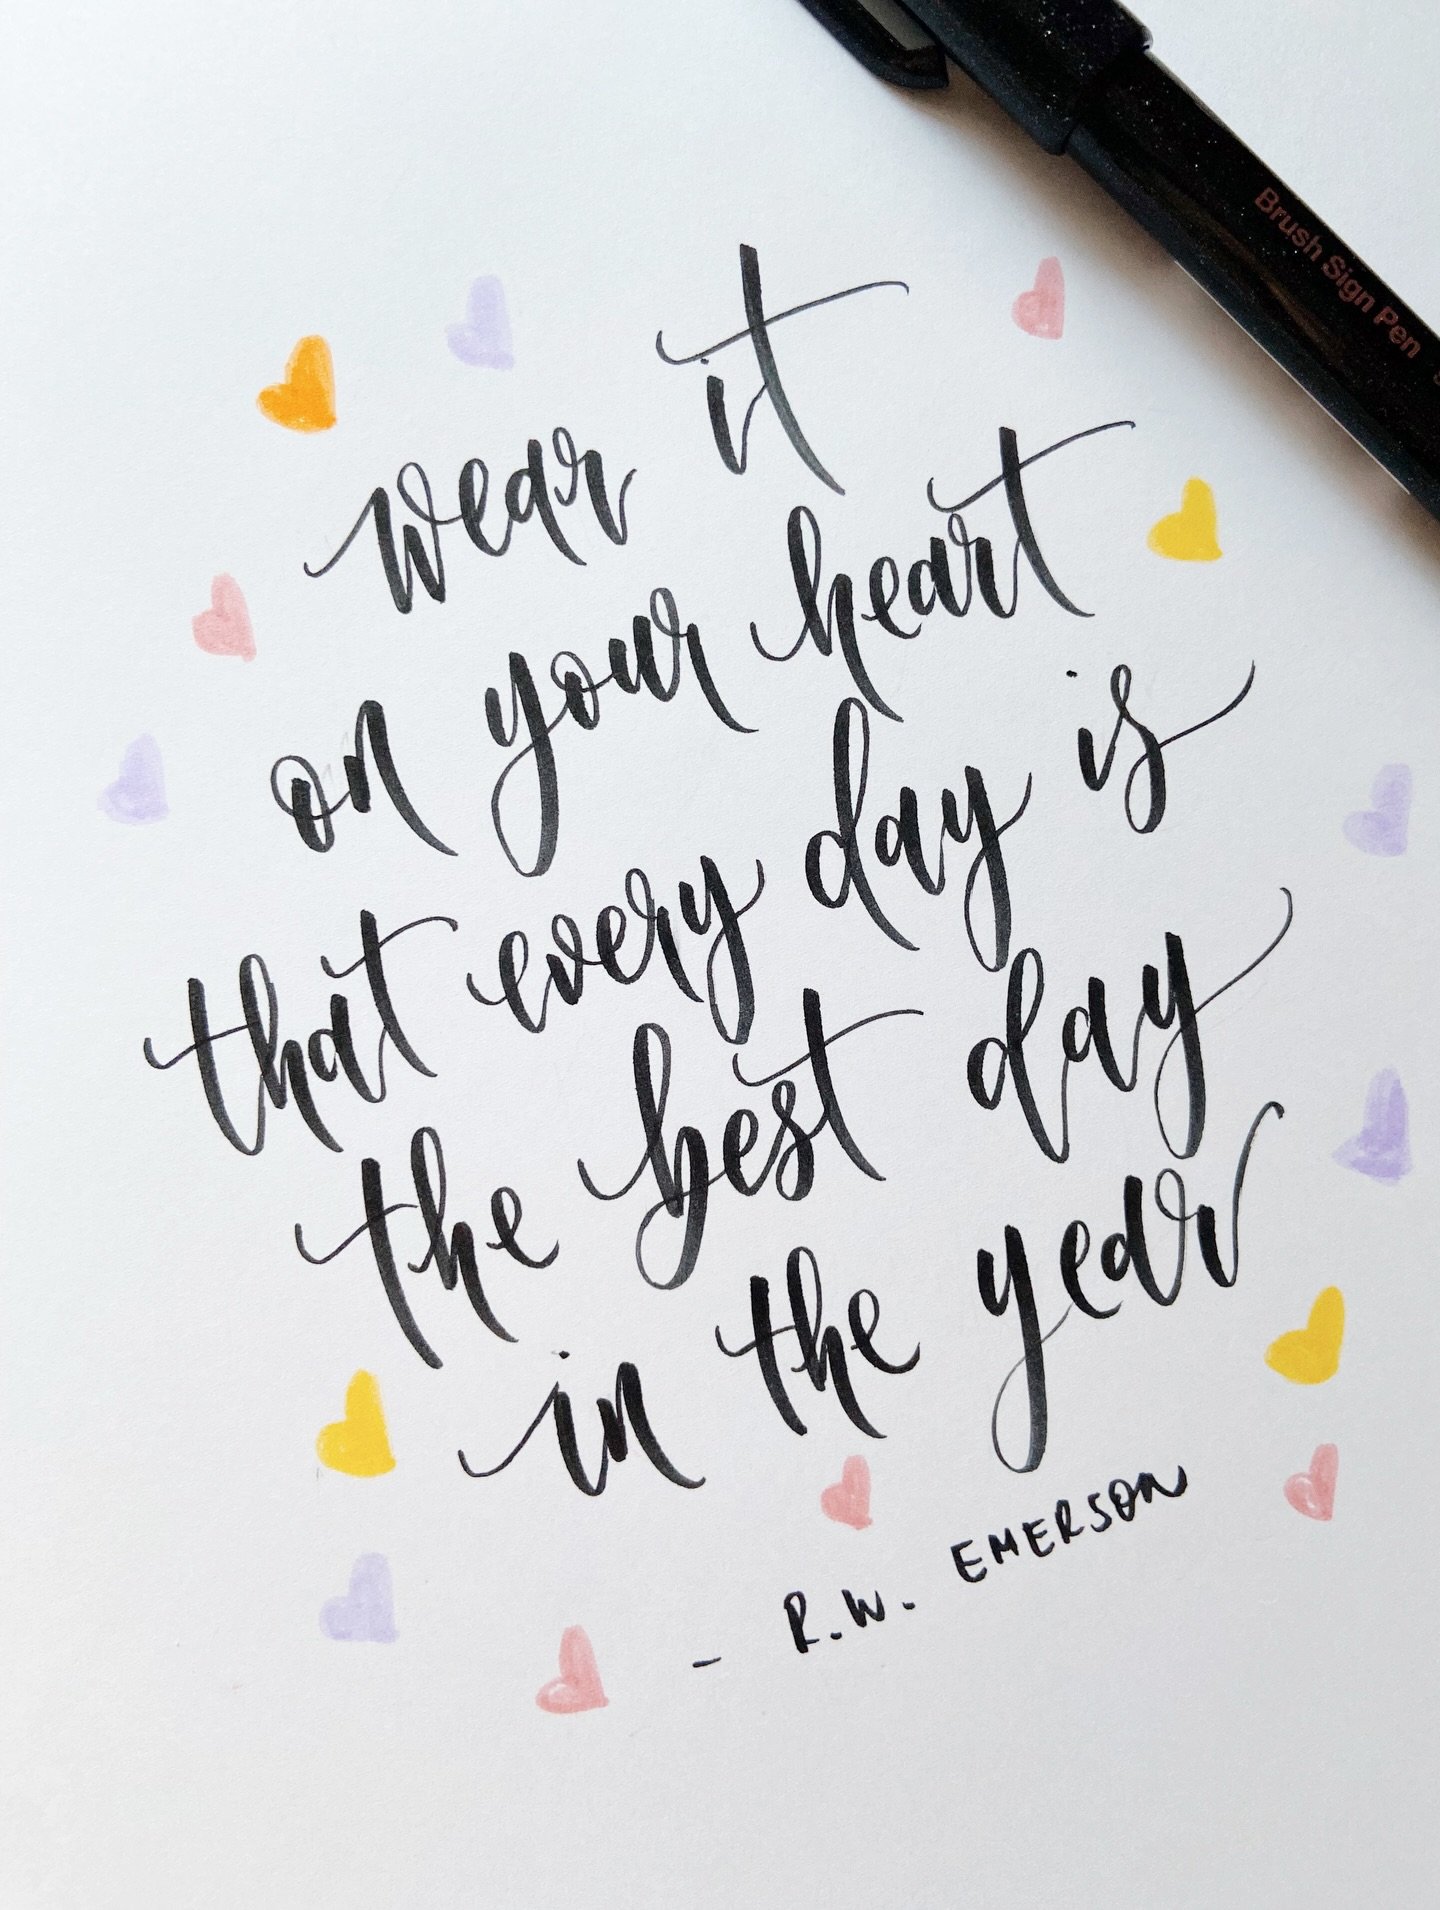 wear it
on your heart
that every day is
the best day
in the year
- R.W. EMERSON
Brush Sign Pen